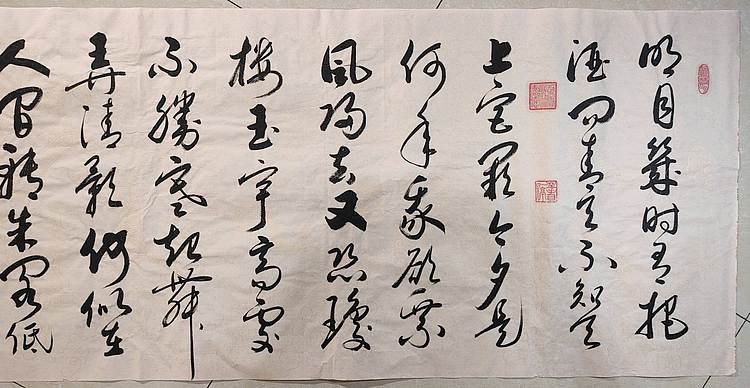 明月幾时有把
酒问青天不知天
上宫阙今夕是
何年我欲乘
風归去又恐瓊
楼玉宇高处
不勝寒起舞
弄清影何似在
人间转朱阁低